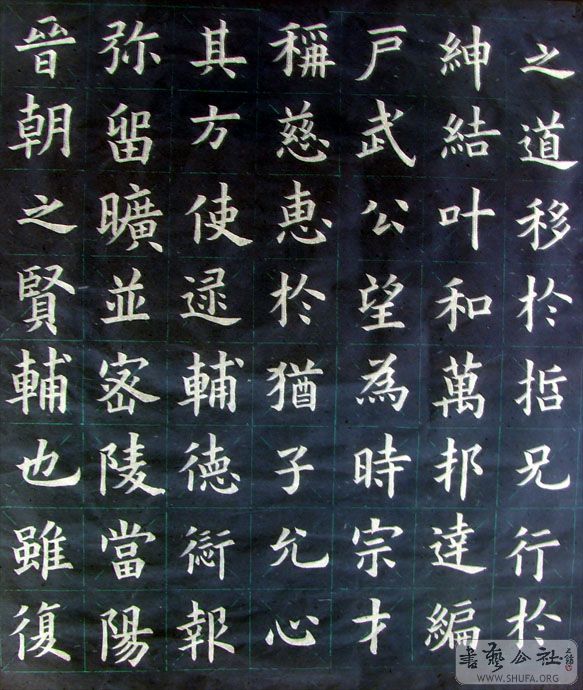 之道移於哲兄行於
紳結叶和萬邦達編
戸武公望為時宗才
稱慈惠於猶子允心
其方使逯輔徳衒報
弥留曠並宻陵當陽
晉朝之賢輔也雖復
書藝公社
WWW.SHUFA.ORG